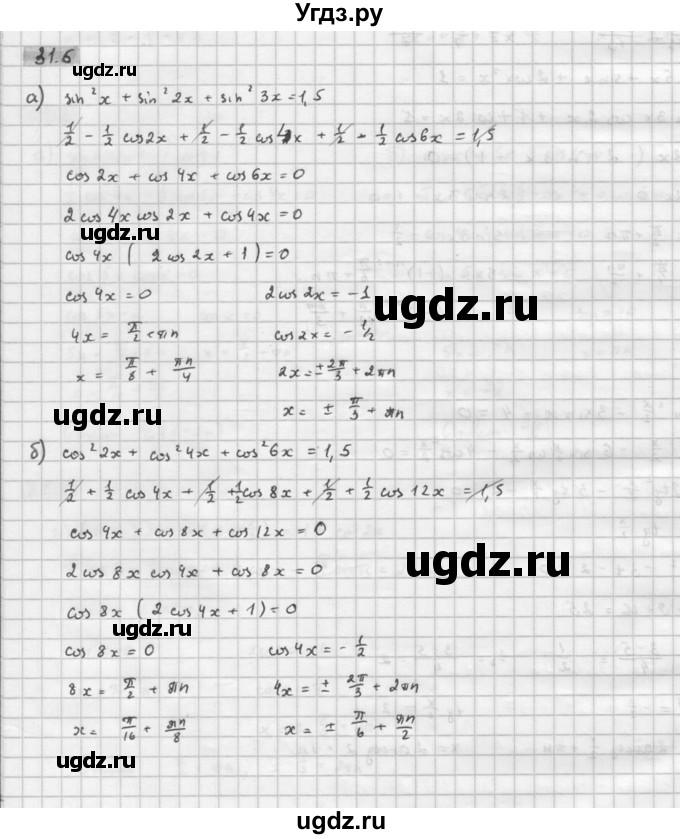 Угдз.ру
31.6
ugdz.ru
а) sin²x + sin²2x + sin²3x = 1,5
1/2 - 1/2 cos2x + 1/2 - 1/2 cos4x + 1/2 - 1/2 cos6x = 1,5
cos 2x + cos 4x + cos 6x = 0
2 cos 4x cos 2x + cos 4x = 0
ugdz.ru
cos 4x ( 2 cos 2x + 1 ) = 0
cos 4x = 0    2 cos 2x = -1
ugdz.ru
4x = π/2 + πn    cos 2x = - 1/2
x = π/8 + πn/4    2x = ± 2π/3 + 2πn
ugdz.ru
x = ± π/3 + πn
б) cos²2x + cos²4x + cos²6x = 1,5
1/2 + 1/2 cos 4x + 1/2 + 1/2 cos 8x + 1/2 + 1/2 cos 12x = 1,5
cos 4x + cos 8x + cos 12x = 0
ugdz.ru
2 cos 8x cos 4x + cos 8x = 0
cos 8x ( 2 cos 4x + 1 ) = 0
ugdz.ru
cos 8x = 0    cos 4x = - 1/2
8x = π/2 + πn    4x = ± 2π/3 + 2πn
x = π/16 + πn/8    x = ± π/6 + πn/2
ugdz.ru